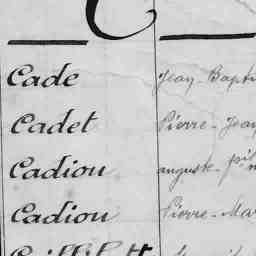 C
Cade Jean-Bapti
Cadet Pierre-Jean
Cadiou auguste-
Cadiou Pierre-Mar